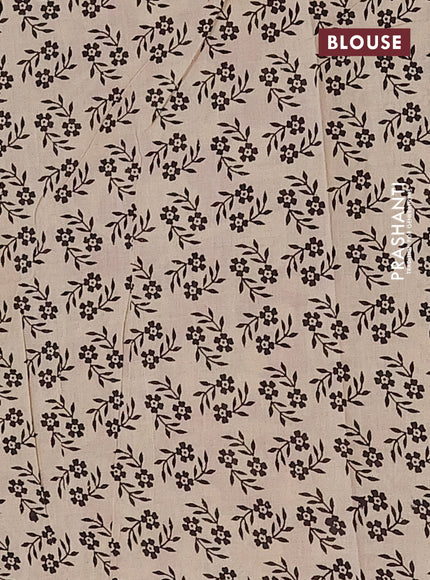 BLOUSE
PRASHANTI